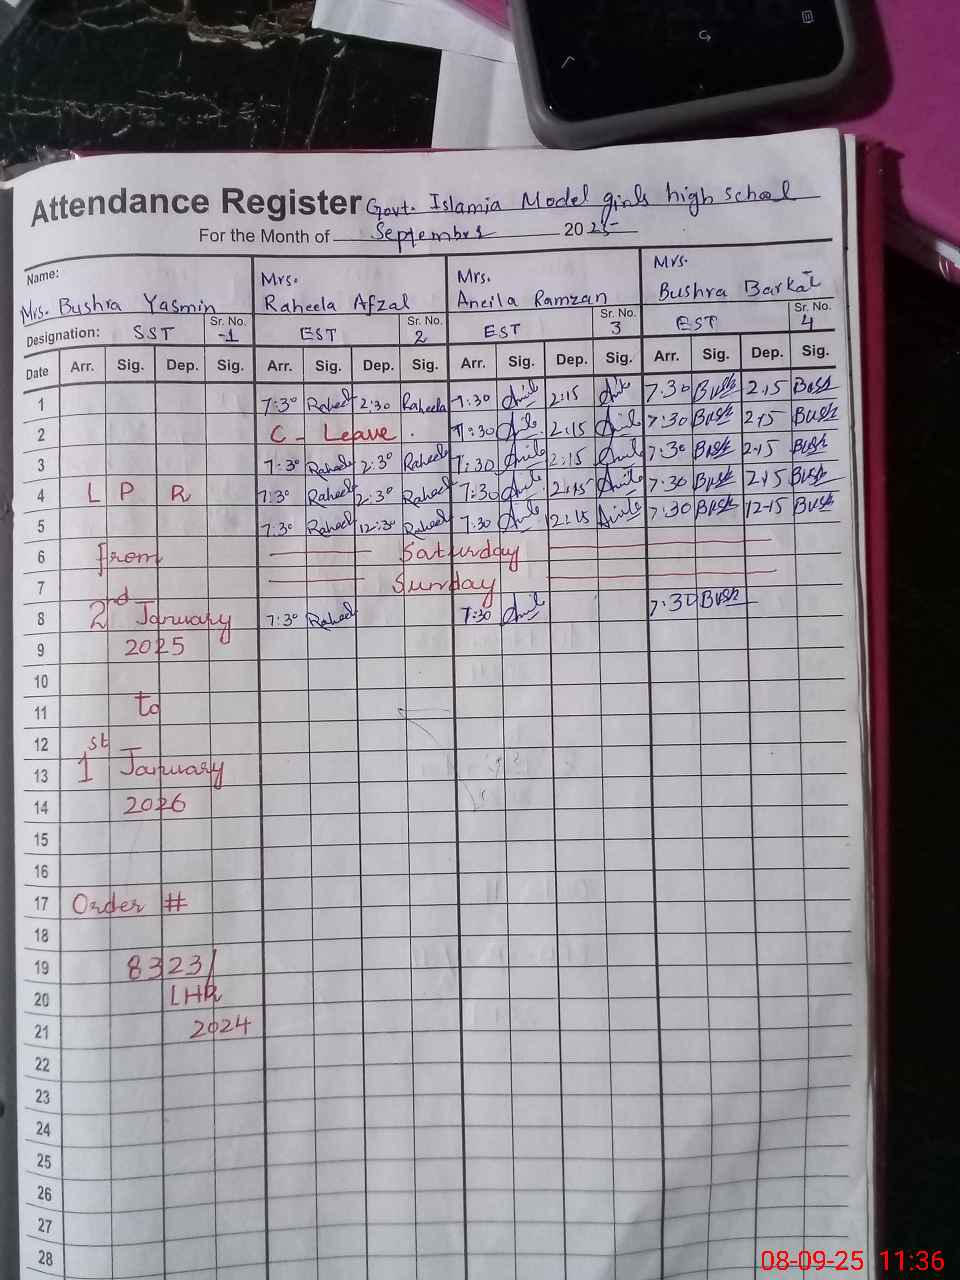 Attendance Register Govt. Islamia Model girls high school
For the Month of September 2025
Name: Mrs. Bushra Yasmin
Mrs. Raheela Afzal
Mrs. Aneila Ramzan
Mrs. Bushra Barkat
Designation: SST Sr. No. -1
EST Sr. No. 2
EST Sr. No. 3
EST Sr. No. 4
Date Arr. Sig. Dep. Sig. Arr. Sig. Dep. Sig. Arr. Sig. Dep. Sig. Arr. Sig. Dep. Sig.
1 7:30 Raheel 2:30 Raheela 7:30 2:15 7:30 Bush 2.15 Bush
2 C - Leave . 7:30 2:15 7:30 Bush 2.15 Bush
3 7:30 Raheel 2:30 Raheel 7:30 2:15 7:30 Bush 2.15 Bush
4 L P R 7:30 Raheel 2:30 Raheel 7:30 2:15 7:30 Bush 2.15 Bush
5 7:30 Raheel 12:30 Raheel 7:30 12:15 7:30 Bush 12-15 Bush
6 From Saturday
7 Sunday
8 2nd January 7:30 Raheel 7:30 7:30 Bush
9 2025
10
11 to
12
13 1st January
14 2026
15
16
17 Order #
18
19 8323/
20 LHR
21 2024
22
23
24
25
26
27
28
08-09-25 11:36